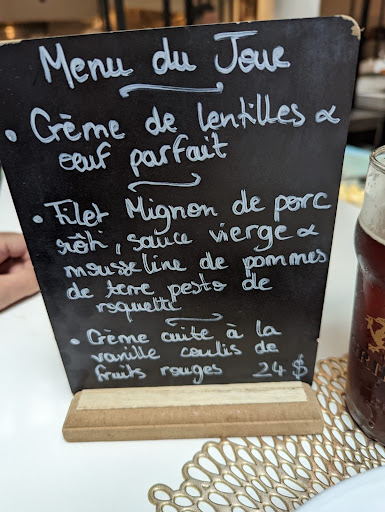 Menu du Jour
• Crème de lentilles &
œuf parfait
• Filet Mignon de porc
rôti, sauce vierge &
mousseline de pommes
de terre pesto de
roquette
• Crème cuite à la
vanille coulis de
fruits rouges 24 $